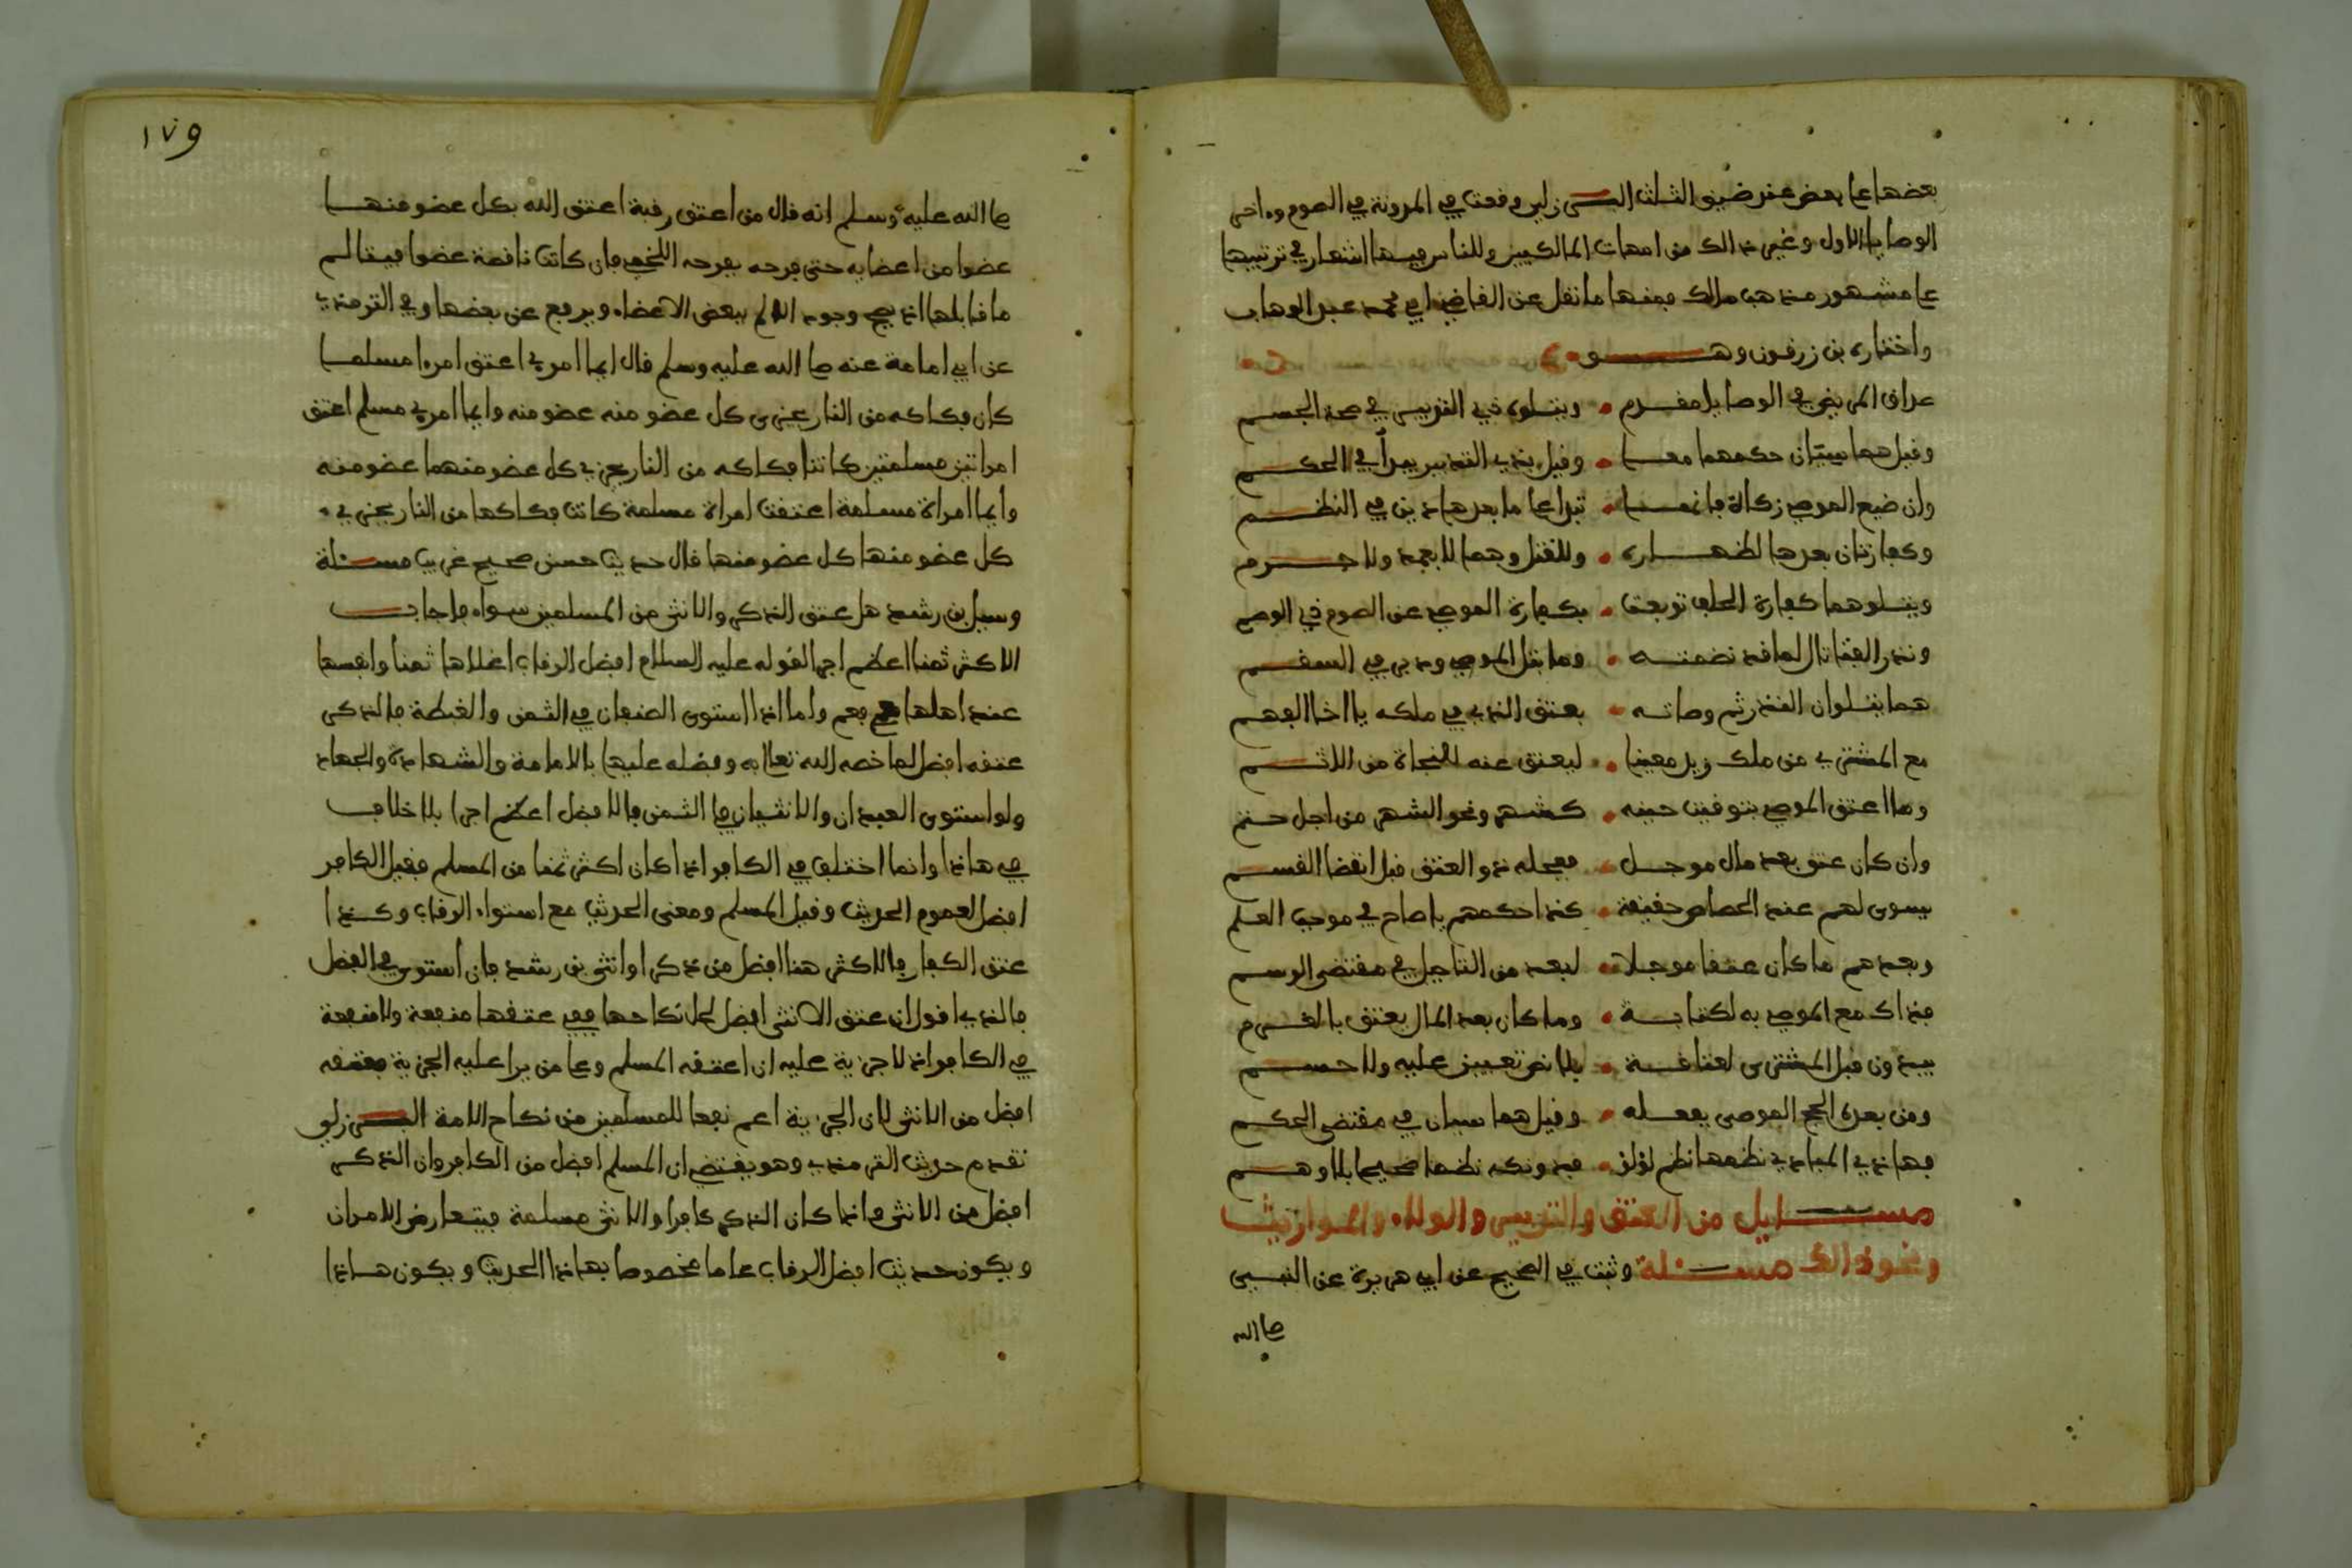 بعضها على بعض عند ضيق الثلث البرزلي وقعت في المدونة في الصوم وءاخر
الوصايا الاول وغير ذالك من امهات المالكيين وللناس فيها اشعار في ترتيبها
على مشهور مذهب مالك فمنها ما نقل عن القاضي ابي محمد عبد الوهاب
واختاره بن زرقون وهو
صداق المريض في الوصايا مقدم • ويتلوه ذي التدبير في صحة الجسم
وقيل هما سيان حكمهما معا • وقيل بذي التدبير يبدأ في الحكم
وان ضيع الموصي زكاة فانها • تبدا على ما بعدها ذين في النظم
وكفارتان بعدها لظهاره • وللقتل وهما لا بعمد ولا جرم
ويتلوهما كفارة الحلف توبعت • بكفارة الموصي عن الصوم ذي الوصم
ونذر الفتى تال لما قد نضمته • وما بتل الموصي ودبر في السقم
هما يتلوان النذر ثم وصاته • بعتق الذي في ملكه يا اخا الفهم
مع المشترى من ملك زيد معينا • ليعتق عنه للنجاة من الاثم
وما اعتق الموصي بتوقيت حينه • كشهر ونحو الشهر من اجل حتم
وان كان عتق بعد مال موجل • فعجله ذو العتق قبل انقضا القسم
يسوى لهم عند الحصاص حقيقة • كذا حكمهم يا صاح في موجب العلم
وبعدهم ما كان عتقا موجلا • لبعد من التاجيل في مقتضى الرسم
فذاك مع الموصى به لكتابة • وما كان بعد المال يعتق بالغرم
يبدون قبل المشترى لعتاقة • بلا نص تعيين عليه ولا حسم
ومن بعده الحج الموصى بفعله • وقيل هما سيان في مقتضى الحكم
فهاذي المبادي نظمها نظم لؤلؤ • فدونكه نظما صحيحا بلا وهم
مسايل من العتق والتدبير والولاء والمواريث
ونحو ذالك مسئلة وثبت في الصحيح عن ابي هريرة عن النبي
صلى الله
١٧٩
صلى الله عليه وسلم انه قال من اعتق رقبة اعتق الله بكل عضو منها
عضوا من اعضايه حتى فرجه بفرجه اللخمي فان كانت ناقصة عضوا فيتالم
ما قابلها اذ يصح وجود الالم ببعض الاعضاء ويرفع عن بعضها وفي الترمذي
عن ابي امامة عنه صلى الله عليه وسلم قال ايما امرئ اعتق امرءا مسلما
كان فكاكه من النار يجزى كل عضو منه عضو منه وايما امرئ مسلم اعتق
امراتين مسلمتين كانتا فكاكه من النار يجزي كل عضو منهما عضو منه
وايما امراة مسلمة اعتقت امراة مسلمة كانت فكاكها من النار يجزي
كل عضو منها كل عضو منها قال حديث حسن صحيح غريب مسئلة
وسيل بن رشد هل عتق الذكر والانثى من المسلمين سواء فاجاب
الاكثر ثمنا اعظم اجرا لقوله عليه السلام افضل الرقاب اغلاها ثمنا وانفسها
عند اهلها فعم واما اذا استوى الصنفان في الثمن والغبطة فالذكر
عتقه افضل لما خصه الله تعالى به وفضله عليها بالامامة والشهادة والجهاد
ولو استوى العبدان والانثيان في الثمن فالافضل اعظم اجرا بلا خلاف
في هاذا وانما اختلف في الكافر اذا كان اكثر ثمنا من المسلم فقيل الكافر
افضل لعموم الحديث وقيل المسلم ومعنى الحديث مع استواء الرقاب وكذا
عتق الكفار فالاكثر هنا افضل من ذكر او انثى بن رشد فان استوى في الفضل
فالذي اقول ان عتق الانثى افضل لحل نكاحها ففي عتقها منفعة ولا منفعة
في الكافر اذ لا جزية عليه ان اعتقه المسلم وعلى من يرا عليه الجزية فعتقه
افضل من الانثى لان الجزية اعم نفعا للمسلمين من نكاح الامة البرزلي
تقدم حديث الترمذي وهو يقتضي ان المسلم افضل من الكافر وان الذكر
افضل من الانثى واذا كان الذكر كافرا والانثى مسلمة فيتعارض الامران
ويكون حديث افضل الرقاب عاما مخصوصا بهاذا الحديث ويكون هاذا